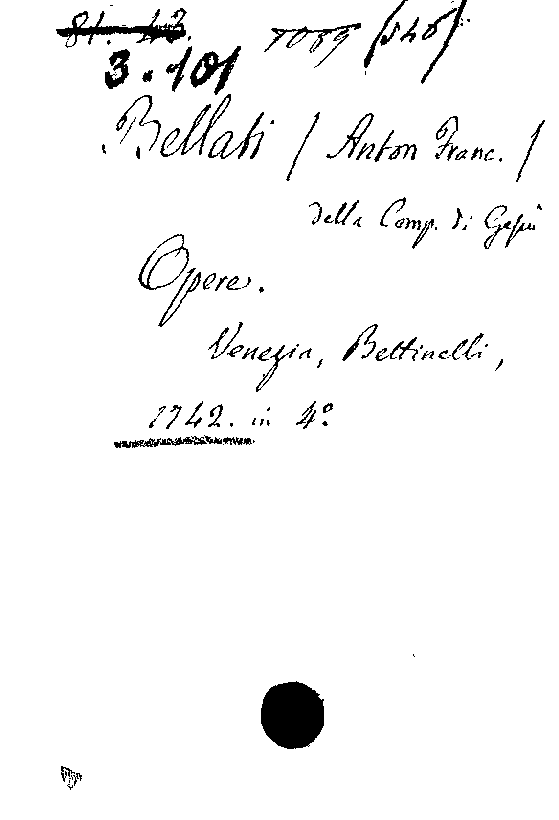 81. 43.
3.101
Bellati / Anton Franc. /
della Comp. di Gesù
Opere.
Venezia, Bettinelli,
1742. in 4º